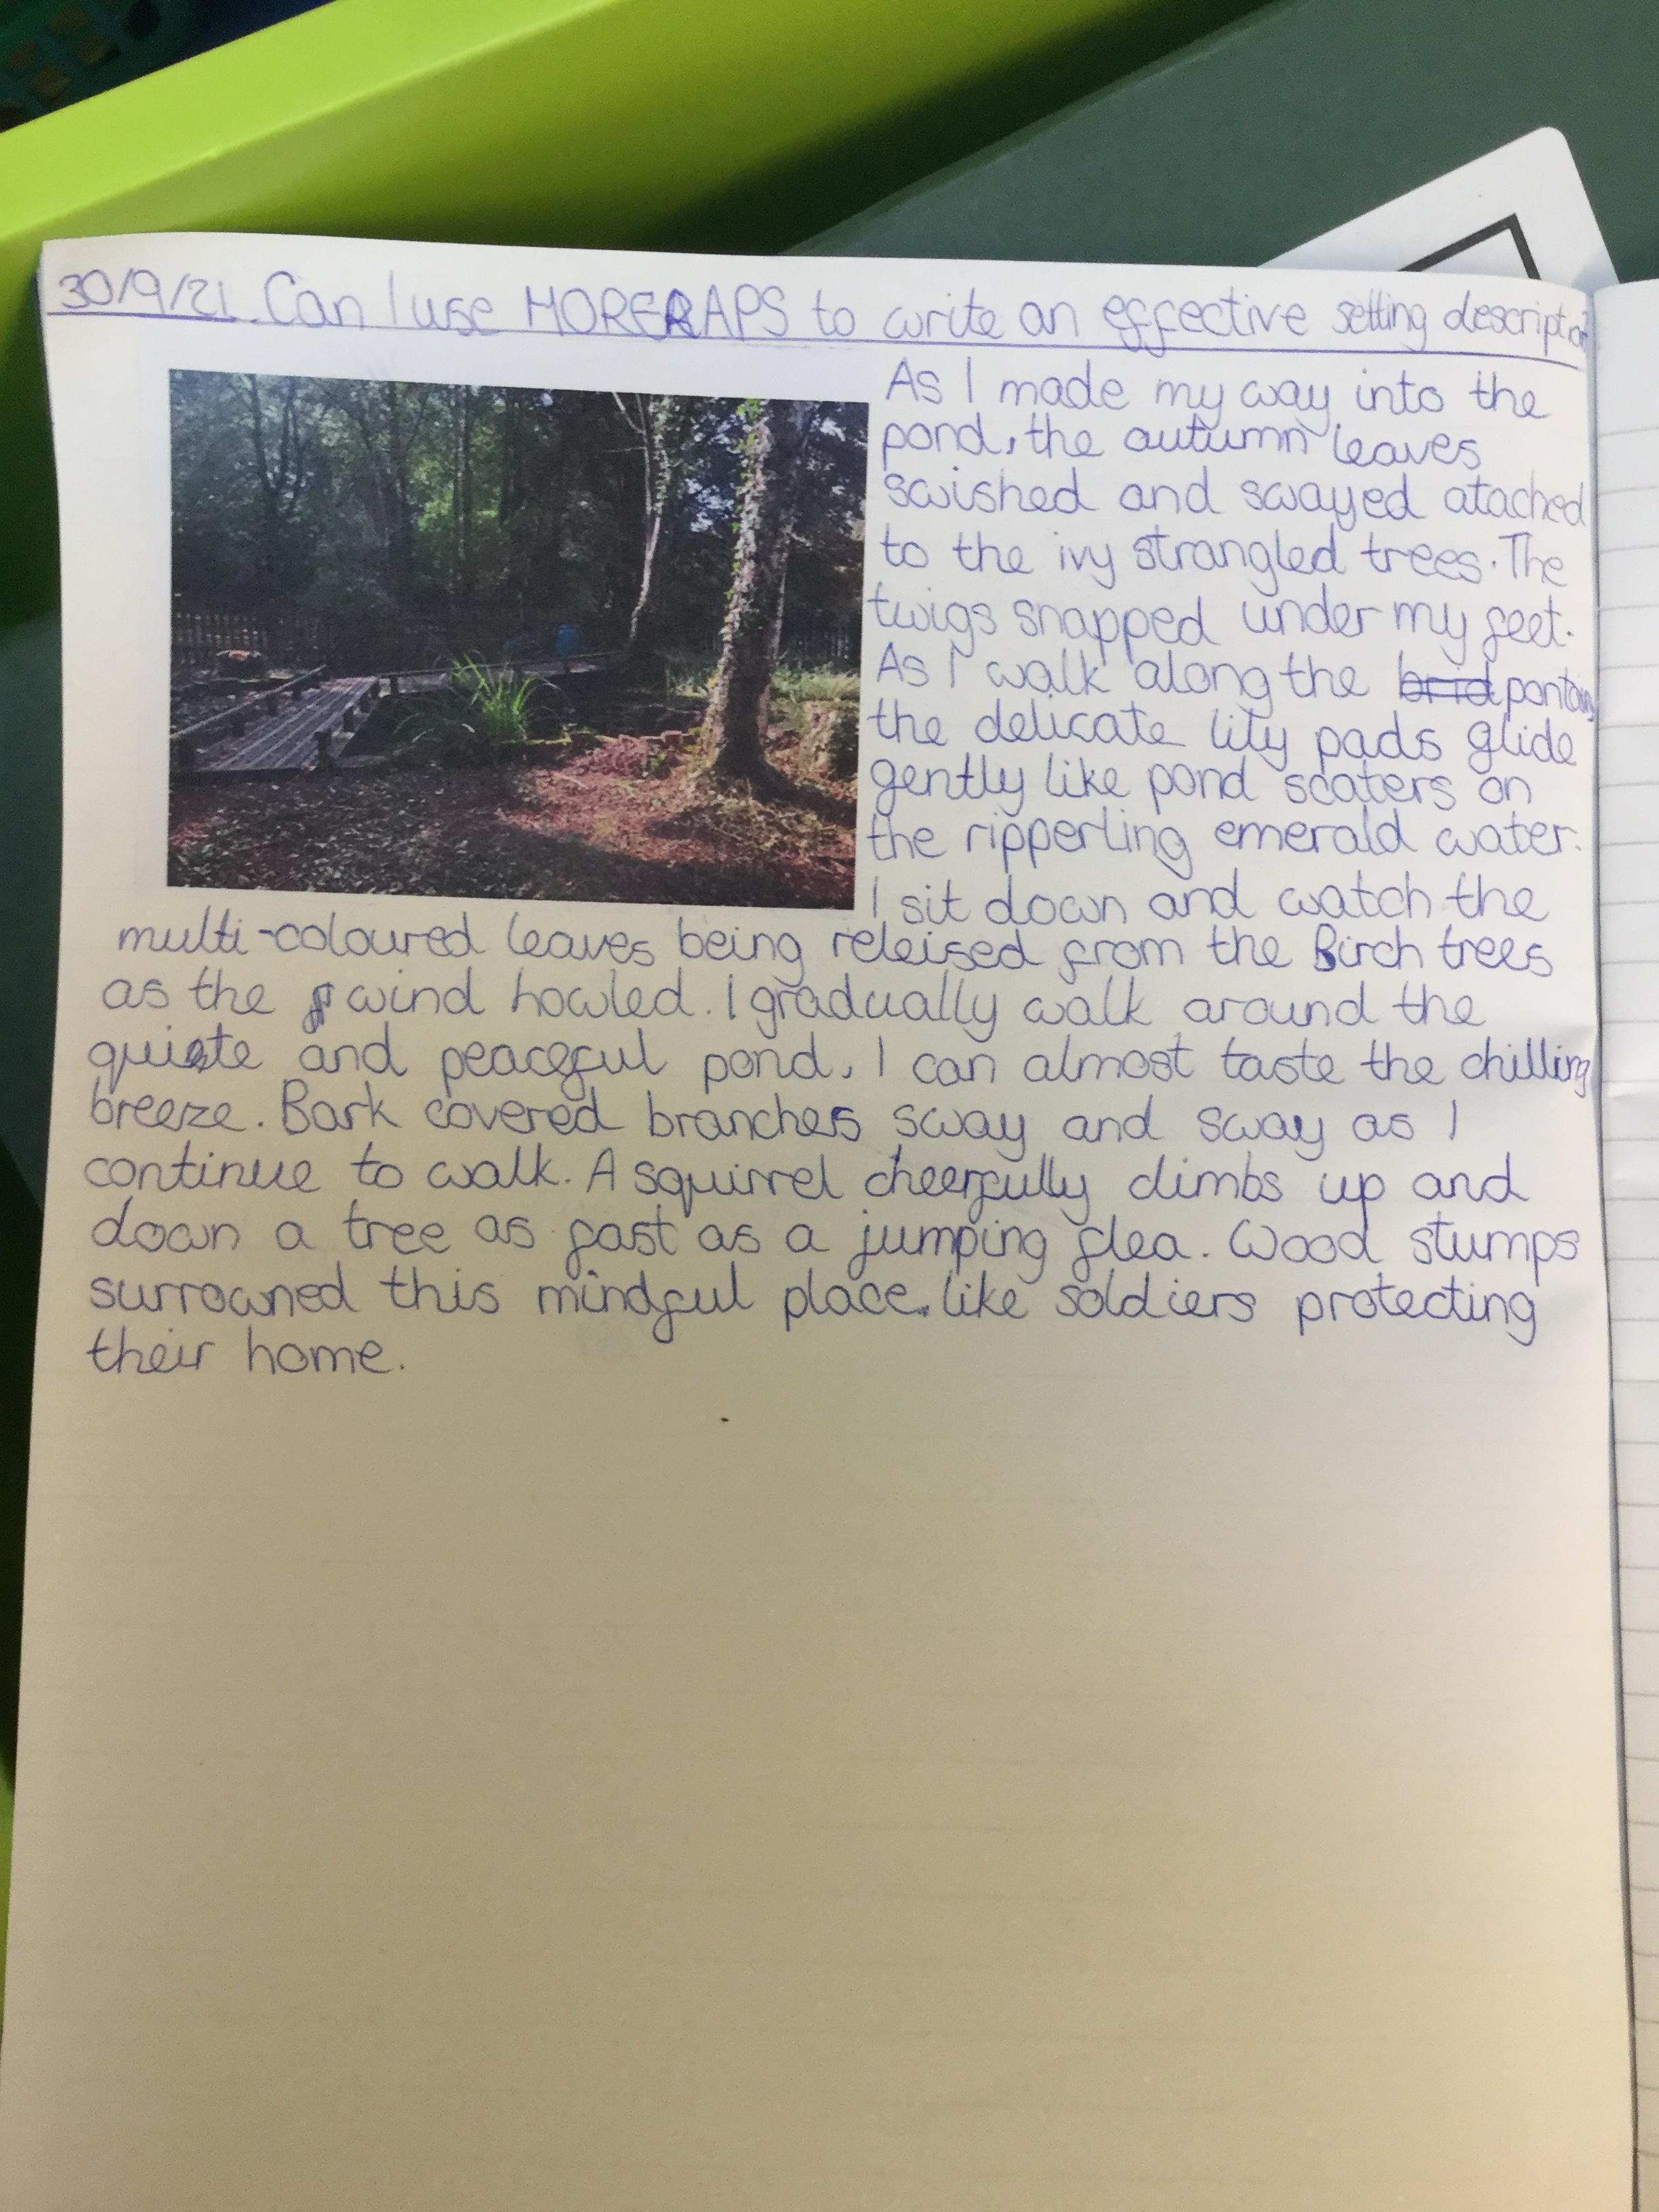 30/9/21 Can I use MORERAPS to write an effective setting description
As I made my way into the
pond, the autumn leaves
swished and swayed atached
to the ivy strangled trees. The
twigs snapped under my feet.
As I walk along the brid pontoon
the delicate lily pads glide
gently like pond scaters on
the ripperling emerald water.
I sit down and watch the
multi-coloured leaves being releised from the Birch trees
as the wind howled. I gradually walk around the
quiete and peaceful pond, I can almost taste the chilling
breeze. Bark covered branches sway and sway as I
continue to walk. A squirrel cheerfully climbs up and
down a tree as fast as a jumping flea. Wood stumps
surrowned this mindful place like soldiers protecting
their home.